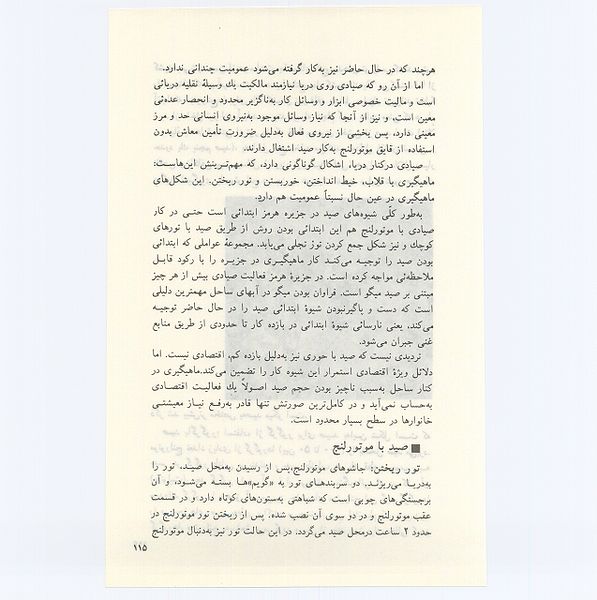 هرچند که در حال حاضر نیز به‌کار گرفته می‌شود عمومیت چندانی ندارد.
اما از آن رو که صیادی روی دریا نیازمند مالکیت یك وسیلهٔ نقلیه دریائی
است و مالیت خصوصی ابزار و وسائل کار به‌ناگزیر محدود و انحصار عده‌ئی
معین است، و نیز از آنجا که نیاز وسائل موجود به‌نیروی انسانی حد و مرز
معینی دارد، پس بخشی از نیروی فعال به‌دلیل ضرورتِ تأمین معاش بدون
استفاده از قایق موتورلنج به‌کار صید اشتغال دارند.
صیادی درکنار دریا، اشکال گوناگونی دارد، که مهم‌ترینش این‌هاست:
ماهیگیری با قلاب، خیط انداختن، خوربستن و تور ریختن. این شکل‌های
ماهیگیری در عین حال نسبتاً عمومیت هم دارد.
به‌طور کلّی شیوه‌های صید در جزیره هرمز ابتدائی است حتی در کار
صیادی با موتورلنج هم این ابتدائی بودن روش از طریق صید با تورهای
کوچك و نیز شکل جمع کردن تور تجلی می‌یابد. مجموعهٔ عواملی که ابتدائی
بودن صید را توجیه می‌کند کار ماهیگیری در جزیره را با رکود قابل
ملاحظه‌ئی مواجه کرده است. در جزیرهٔ هرمز فعالیت صیادی بیش از هر چیز
مبتنی بر صید میگو است. فراوان بودن میگو در آبهای ساحل مهمترین دلیلی
است که دست و پاگیرنبودن شیوهٔ ابتدائی صید را در حال حاضر توجیه
می‌کند، یعنی نارسائی شیوهٔ ابتدائی در بازده کار تا حدودی از طریق منابع
غنی جبران می‌شود.
تردیدی نیست که صید با حوری نیز به‌دلیل بازده کم، اقتصادی نیست. اما
دلائل ویژهٔ اقتصادی استمرار این شیوه کار را تضمین می‌کند.ماهیگیری در
کنار ساحل به‌سبب ناچیز بودن حجم صید اصولاً یك فعالیت اقتصادی
به‌حساب نمی‌آید و در کامل‌ترین صورتش تنها قادر به‌رفع نیاز معیشتی
خانوارها در سطح بسیار محدود است.
■ صید با موتورلنج
تور ریختن: جاشوهای موتورلنج،پس از رسیدن به‌محل صید، تور را
به‌دریا می‌ریزند. دو سربندهای تور به «گویم»ها بسته می‌شود، و آن
برجستگی‌های چوبی است که شباهتی به‌ستون‌های کوتاه دارد و در قسمت
عقب موتورلنج و در دو سوی آن نصب شده. پس از ریختن تور موتورلنج در
حدود ۲ ساعت درمحل صید می‌گردد. در این حالت تور نیز به‌دنبال موتورلنج
۱۱۵